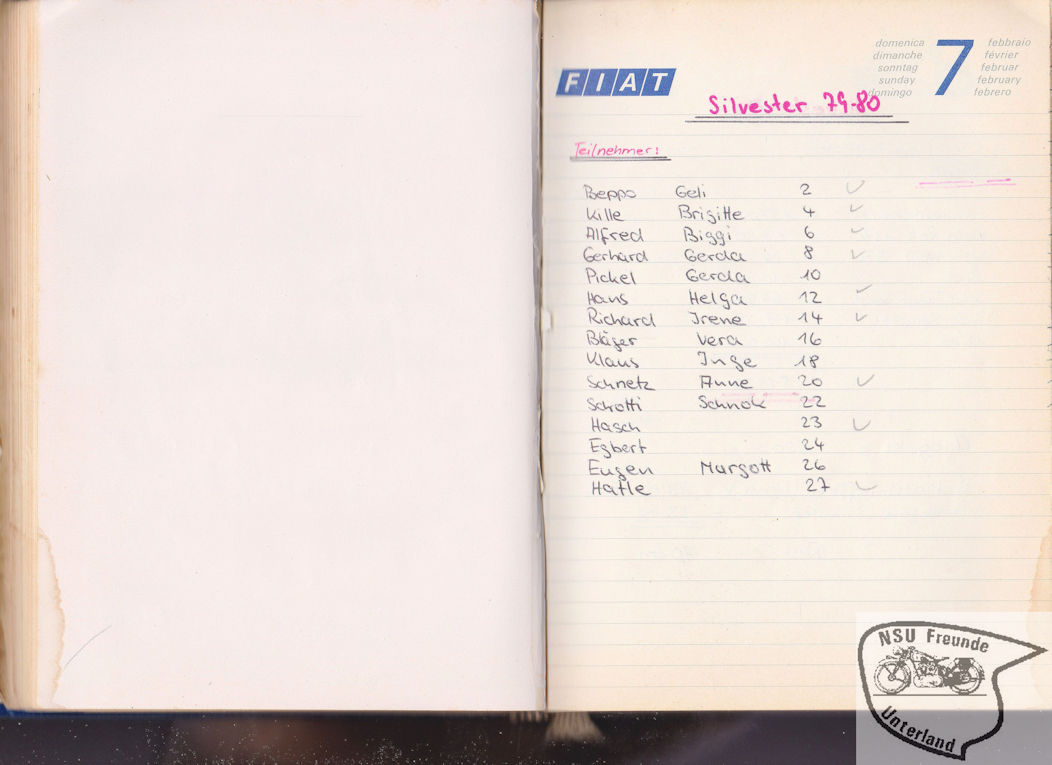 domenica febbraio
dimanche février
sonntag februar
sunday february
domingo febrero
7
FIAT
Silvester 79-80
Teilnehmer:
Beppo Geli 2
Kille Brigitte 4
Alfred Biggi 6
Gerhard Gerda 8
Pickel Gerda 10
Hans Helga 12
Richard Irene 14
Bläser Vera 16
Klaus Inge 18
Schnetz Anne 20
Schrotti 22
Hasch 23
Egbert 24
Eugen Margott 26
Hafle 27
NSU Freunde
Unterland